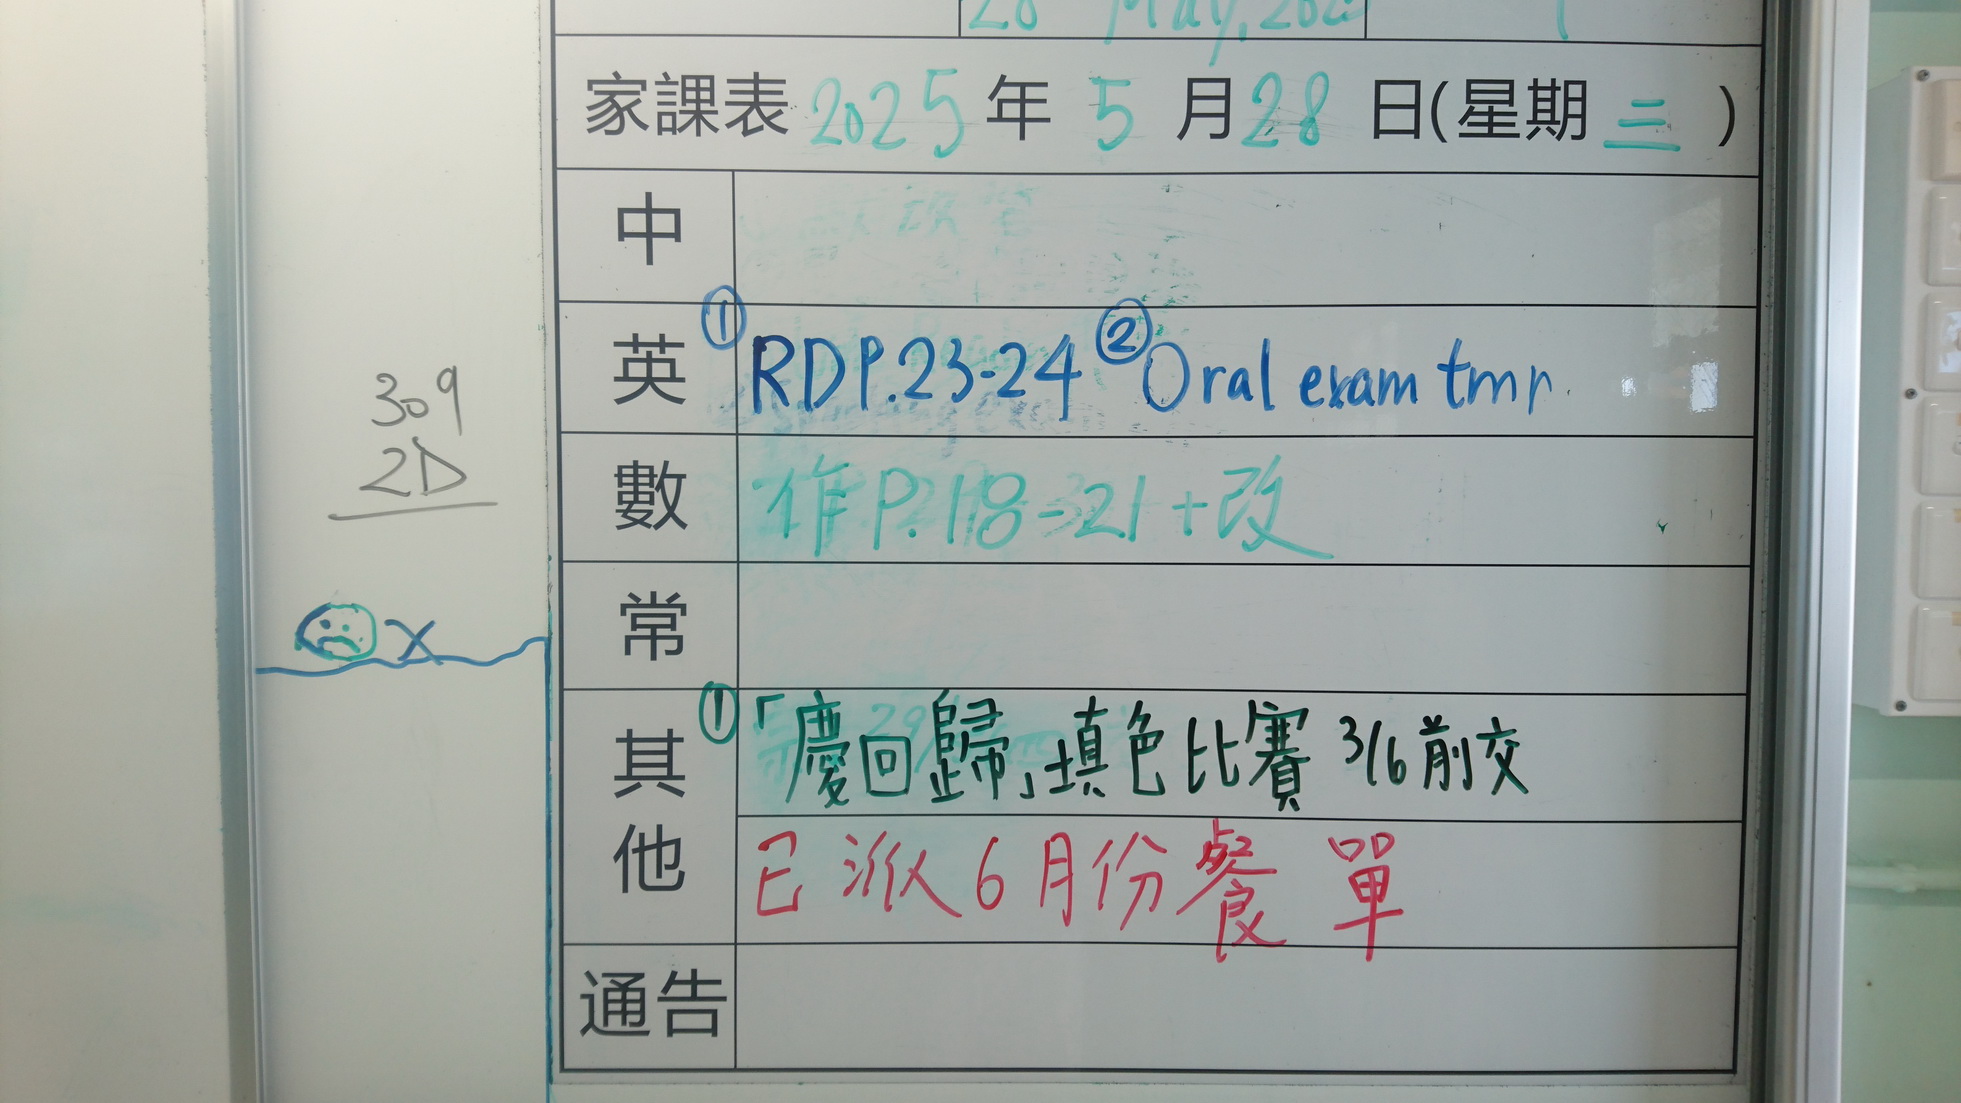 28 May, 202
家課表 2025 年 5 月 28 日(星期 三 )
309
2D
中
英 ① RD P.23-24 ② Oral exam tmr.
數 作 P.18-21 + 改
常
其他 ①「慶回歸」填色比賽 3/6 前交
已派 6 月份餐單
通告
x